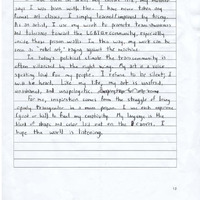 says I was born with this. I have never taken any
formal art classes. I simply learned/improved by doing.
As an artist, I use my work to promote Transawareness
and tolerance toward the LGBTQ+ community, especially
inside these prison walls. In this way, my work can be
seen as "rebel art," raging against the machine.
In today's political climate the trans community is
often villainized by the right wing. My art is a voice
speaking loud for my people. I refuse to be silent; I
will be heard. Like my life, my art is unafraid,
uninhibited, and unapologetic.
For me, inspiration comes from the struggle of being
openly Transgender in a men's prison. I use such superior
to fuel my creativity. My language is the
kind of shape and color laid out on the canvas. I
hope the world is listening.